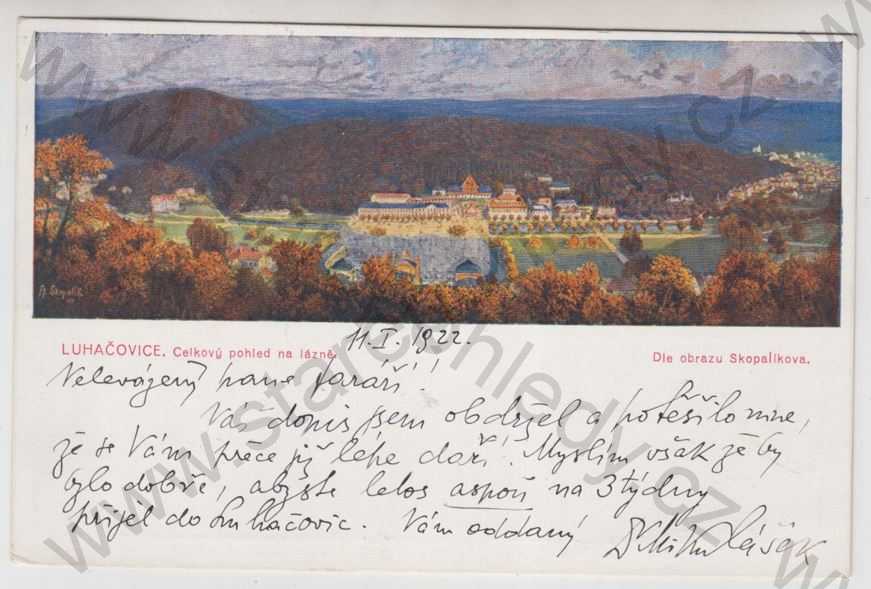 A. Skopalík
LUHAČOVICE. Celkový pohled na lázně.
11. I. 1922.
Dle obrazu Skopalíkova.
Velevážený pane faráři!
Váš dopis jsem obdržel a potěšilo mne,
že se Vám přece již lépe daří. Myslím však že by
bylo dobře, abyste letos aspoň na 3 týdny
přijel do Luhačovic. Vám oddaný
Dr
www.starepohledy.cz